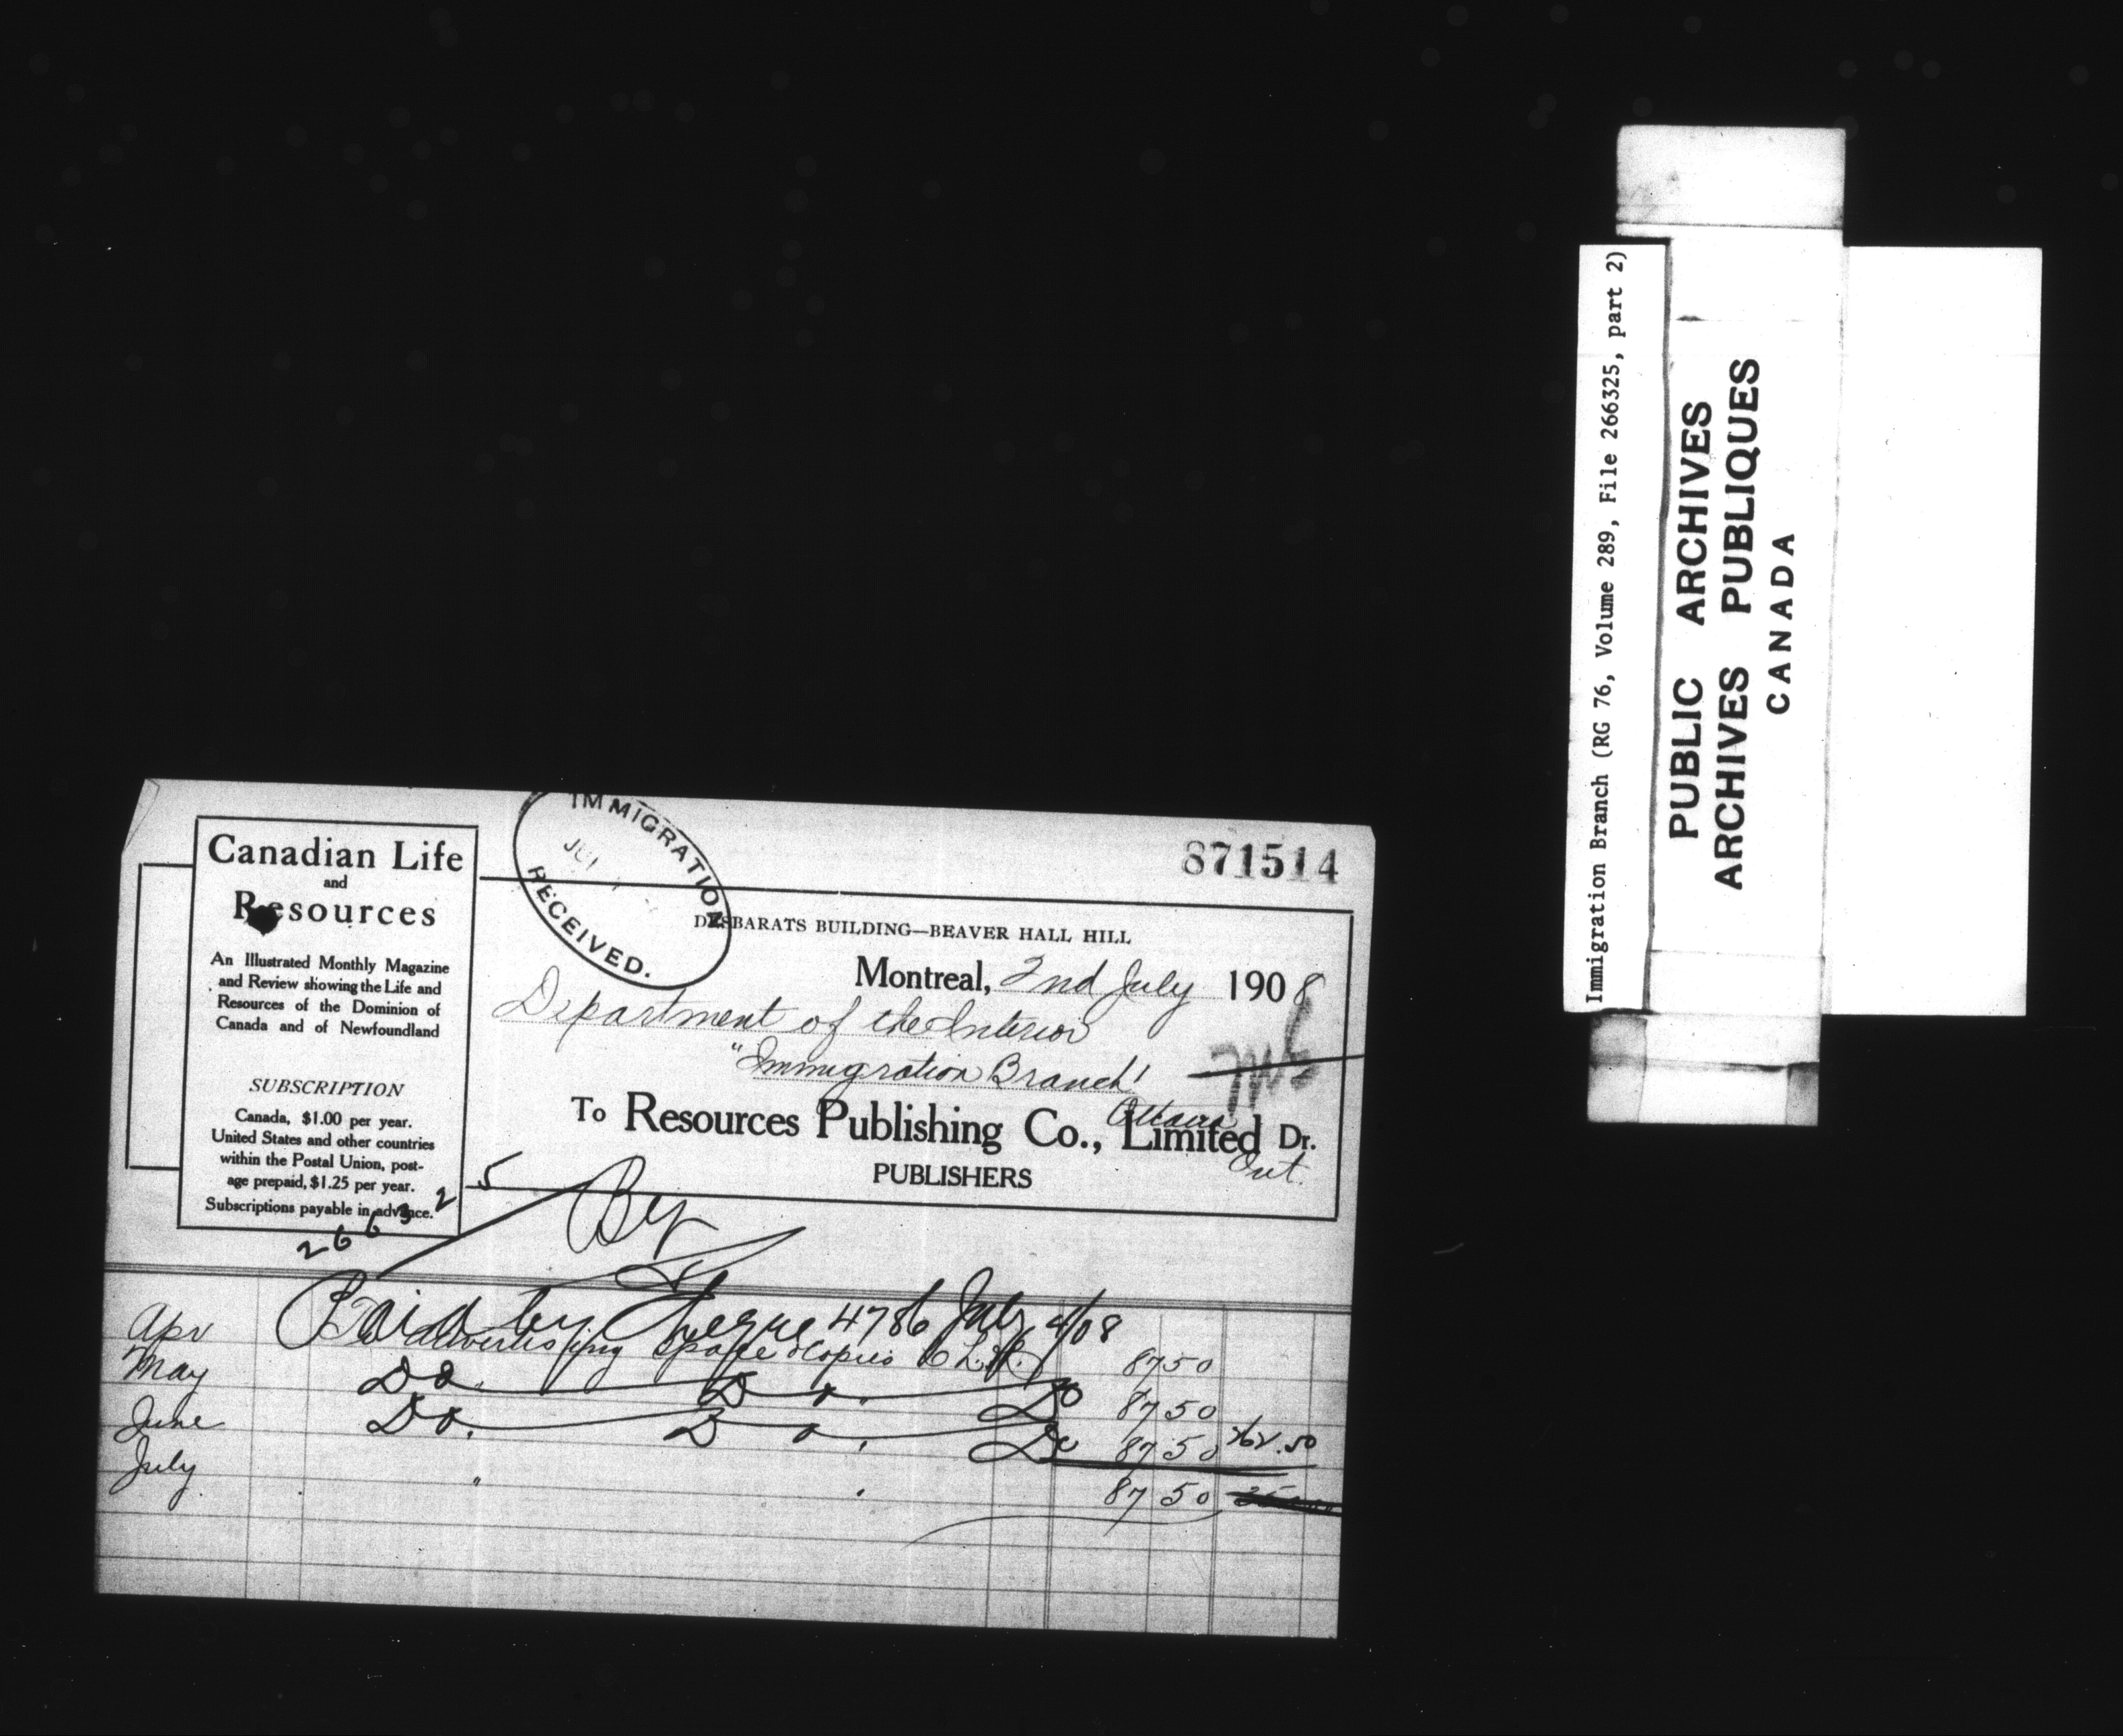 Canadian Life
and
Resources
An Illustrated Monthly Magazine
and Review showing the Life and
Resources of the Dominion of
Canada and of Newfoundland
SUBSCRIPTION
Canada, $1.00 per year.
United States and other countries
within the Postal Union, post-
age prepaid, $1.25 per year.
Subscriptions payable in advance.
266325
IMMIGRATION
RECEIVED.
871514
DESBARATS BUILDING—BEAVER HALL HILL
Montreal, 2nd July 1908
Department of the Interior
"Immigration Branch"
Ottawa
To Resources Publishing Co., Limited Dr.
Ont.
PUBLISHERS
Paid by Cheque 4786 July 4/08
Apr To advertising space & copies C L. & R. 87 50
May Do. Do. Do 87 50
June Do. Do. Do 87 50 262.50
July " " 87 50
Immigration Branch (RG 76, Volume 289, File 266325, part 2)
PUBLIC ARCHIVES
ARCHIVES PUBLIQUES
CANADA